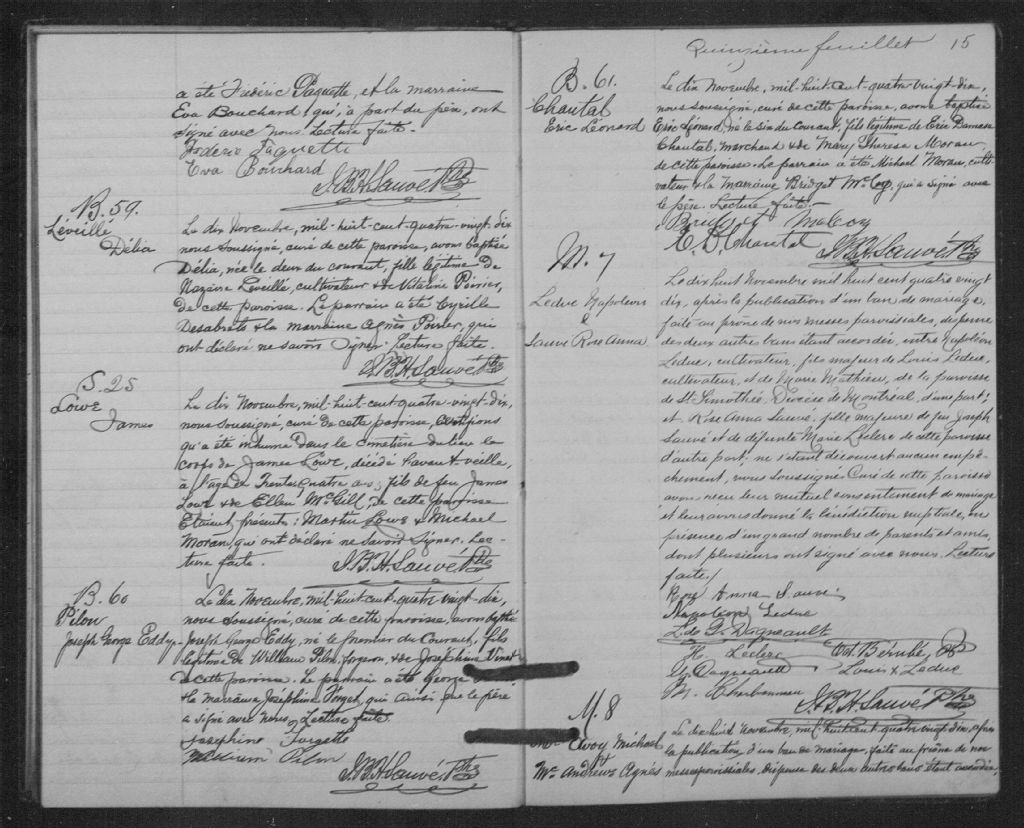 a été Frédéric Paquette, et la marraine
Eva Bouchard qui, à part du père, ont
signé avec nous. Lecture faite.
Fréderic Paquette
Eva Bouchard
J.B.H. Sauvé Ptre
B. 59.
Léveillé
Délia
Le dix Novembre, mil-huit-cent-quatre-vingt-dix
nous soussigné, curé de cette paroisse, avons baptisé
Délia, née le deux du courant, fille légitime de
Nazaire Léveillé, cultivateur & de Vitaline Poirier,
de cette paroisse. Le parrain a été Cyrille
Desabrets & la marraine Agnès Poirier, qui
ont déclaré ne savoir signer. Lecture faite.
J.B.H. Sauvé Ptre
S. 25
Lowe
James
Le dix Novembre, mil-huit-cent-quatre-vingt-dix,
nous soussigné, curé de cette paroisse, certifions
qu'a été inhumé dans le cimetière du lieu le
corps de James Lowe, décédé l'avant-veille,
à l'age de trente quatre ans, fils de feu James
Lowe & de Ellen McGill, de cette paroisse
Etaient présents: Martin Lowe & Michael
Moran, qui ont déclaré ne savoir signer. Lec-
ture faite.
J.B.H. Sauvé Ptre
B. 60
Pilon
Joseph George Eddy
Le dix Novembre, mil-huit-cent-quatre-vingt-dix,
nous soussigné, curé de cette paroisse, avons baptisé
Joseph George Eddy, né le premier du courant, fils
légitime de William Pilon, forgeron, & de Joséphine
de cette paroisse. Le parrain a été George
& la marraine Joséphine Forget, qui ainsi que le père
a signé avec nous. Lecture faite.
Josephine Forgette
William Pilon
J.B.H. Sauvé Ptre
Quinzième feuillet 15
B. 61.
Chantal
Eric Léonard
Le dix Novembre, mil-huit-cent-quatre-vingt-dix,
nous soussigné, curé de cette paroisse, avons baptisé
Eric Léonard, né le six du courant, fils légitime de Eric Damase
Chantal, marchand & de Mary Theresa Moran,
de cette paroisse. Le parrain a été Michael Moran, culti-
vateur & la marraine Bridget McCoy, qui a signé avec
le père. Lecture faite.
Bridget McCoy
E. D. Chantal
J.B.H. Sauvé Ptre
M. 7
Leduc Napoléon
&
Sauvé Rose Anna
Le dix huit Novembre mil huit cent quatre vingt
dix, après la publication d'un ban de mariage,
faite au prône de nos messes paroissiales, dispense
des deux autres bans étant accordée, entre Napoléon
Leduc, cultivateur, fils majeur de Louis Leduc,
cultivateur, et de Marie Mathieu, de la paroisse
de St. Timothée, Diocèse de Montréal, d'une part;
et Rose Anna Sauvé, fille majeure de feu Joseph
Sauvé et de défunte Marie Leclerc de cette paroisse
d'autre part; ne s'étant découvert aucun empê-
chement, nous soussigné Curé de cette paroisse
avons reçu leur mutuel consentement de mariage
et leur avons donné la bénédiction nuptiale, en
présence d'un grand nombre de parents et amis,
dont plusieurs ont signé avec nous. Lecture
faite.
Rose Anna Sauvé
Napoléon Leduc
L. de G. Daigneault
H. Leclerc
Bérubé
Daigneault
Louis x Leduc
Cherbonneau
J.B.H. Sauvé Ptre
M. 8
Mc Avoy Michael
&
Mc Andrews Agnès
Le dix huit Novembre, mil huit cent quatre vingt dix, après
la publication d'un ban de mariage, faite au prône de nos
messes paroissiales, dispense des deux autres bans étant accordée,